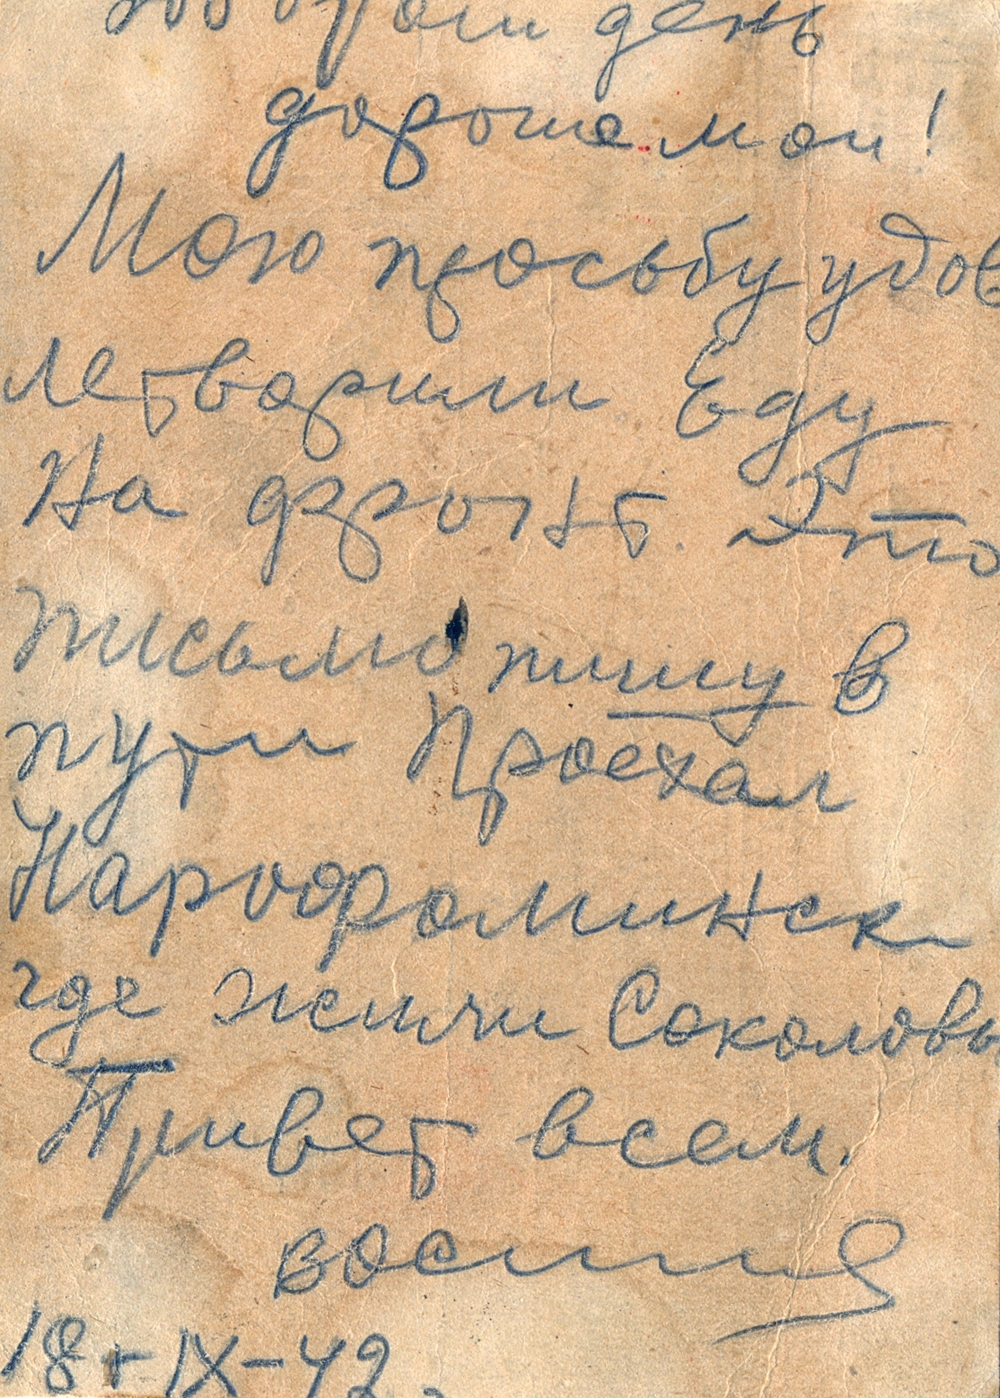 Добрый день
дороше мои!
Мою просьбу удов
летворили Еду
На фронт. Это
письмо пишу в
пути Проехал
Нарофоминск
где жили Соколовы
Привет всем.
18 IX-42.